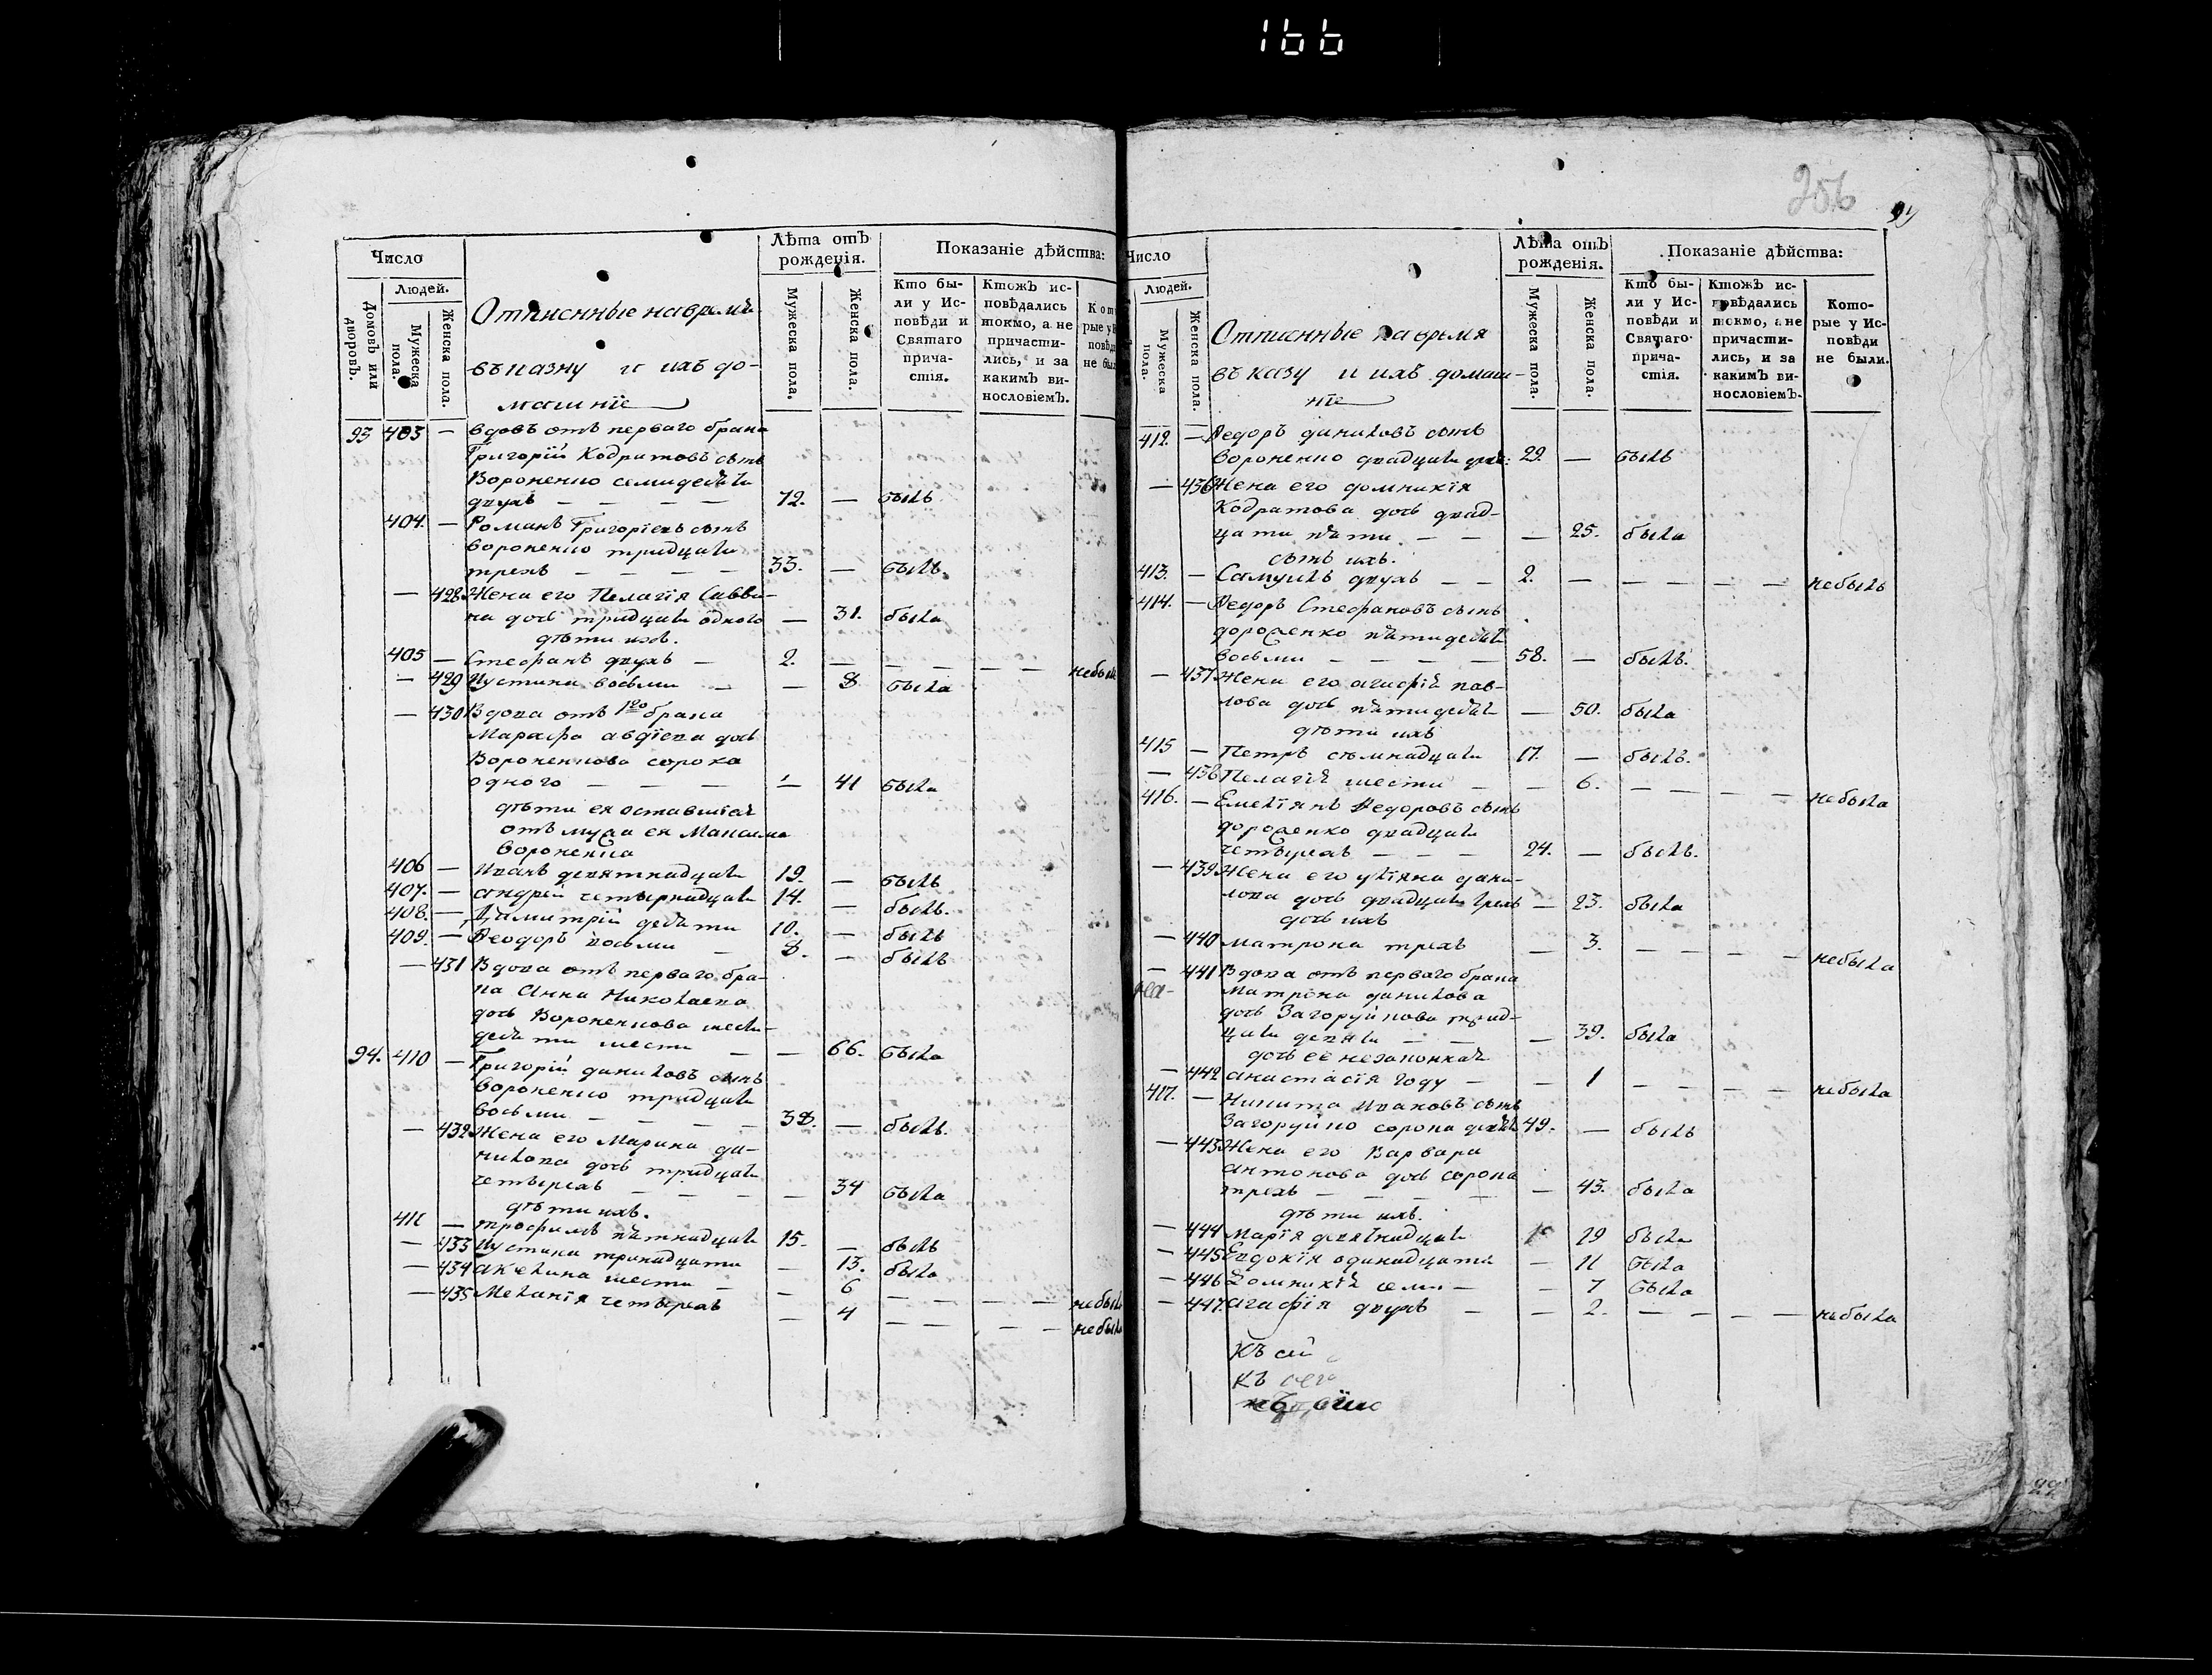 166
256
Число
Людей.
Домовъ или дворовъ.
Мужеска пола.
Женска пола.
Отписнные навремъ
въ казну и ихъ до-
машніе
Лѣта отъ рожденія.
Мужеска пола.
Женска пола.
Показаніе дѣйства:
Кто бы-
ли у Ис-
повѣди и
Святаго
прича-
стія.
Ктожъ ис-
повѣдались
токмо, а не
причасти-
лись, и за
какимъ ви-
нословіемъ.
93 403 — вдовъ отъ перваго брака
Григорій Кодратовъ сынъ
Вороненко семидесѧти
двухъ — — — — 72. — былъ
404. — Романъ Григоріевъ сынъ
вороненко тридцати
трехъ — — — — 33. — былъ.
— 428 Жена его Пелагія Савви-
на дочь тридцати одного — 31. была
дѣти ихъ.
405 — Стефанъ двухъ — 2. — — — — — небылъ
— 429 Иустина восьми — — 8 была
— 430 Вдова отъ 1го брака
Марафа авдіева дочь
Вороненкова сорока
одного — — — — 41 была
дѣти ея оставшіеся
отъ мужа ея Максима
Вороненка
406 — Иванъ девятнадцати 19. — былъ
407. — андрей четырнадцати 14. — былъ.
408. — Дамитрій десѧти 10. — былъ
409. — Ѳеодоръ восьми — 8. — былъ
— 431 Вдова отъ перваго бра-
ка Анна Николаева
дочь Вороненкова шесть-
десѧти шести — — 66. была
94. 410 — Григорій даниловъ сынъ
вороненко тридцати
восьми — — — — 38. — былъ.
— 432 Жена его Марина да-
нилова дочь тридцати
четырехъ — — — — 34 была
дѣти ихъ.
411 — трофимъ пѧтнадцати 15. — былъ
— 433 Иустина тринадцати — 13. была
— 434 акелина шести — — 6 — — — — небыла
— 435 Меланія четырехъ — 4 — — — — небыла
Число
Людей.
Мужеска пола.
Женска пола.
Отписнные на время
въ казну и ихъ домаш-
ніе
Лѣта отъ рожденія.
Мужеска пола.
Женска пола.
Показаніе дѣйства:
Кто бы-
ли у Ис-
повѣди и
Святаго
прича-
стія.
Ктожъ ис-
повѣдались
токмо, а не
причасти-
лись, и за
какимъ ви-
нословіемъ.
Кото-
рые у Ис-
повѣди
не были.
412. — Ѳедоръ даниловъ сынъ
вороненко двадцати 29. — былъ
— 436 Жена его домникія
Кодратова дочь двад-
цати пѧти — — — 25. была
сынъ ихъ.
413. — Самуилъ двухъ — — 2. — — — — небылъ
414. — Ѳедоръ Стефановъ сынъ
дороженко пѧтидесѧти
восьми — — — — 58. — былъ.
— 437 Жена его агафіѧ пав-
лова дочь пѧтидесѧти — 50. была
дѣти ихъ
415 — Петръ сѣмнадцати 17. — былъ.
— 438 Пелагіѧ шести — — 6. — — — — небыла
416. — Емеліянъ Ѳедоровъ сынъ
дороженко двадцати
четырехъ — — — 24. — былъ.
— 439 Жена его уліяна дани-
лова дочь двадцати трехъ — 23. была
дочь ихъ
— 440 матрона трехъ — 3. — — — — небыла
— 441 Вдова отъ перваго брака
Матрона данилова
дочь Загоруйкова трид-
цати девяти — — — 39. была
дочь ее незаконнаѧ
— 442 анастасія году — — 1 — — — — небыла
417. — Никита Ивановъ сынъ
Загоруйко сорока 49. — былъ
— 443 Жена его Варвара
антонова дочь сорока
трехъ — — — — 43. была
дѣти ихъ.
— 444 Марія девятнадцати 19 была
— 445 Евдокія одинадцати — 11 была
— 446 Домникіѧ семи — — 7 была
— 447. агафія двухъ — — 2. — — — — небыла
Къ сей
къ сего